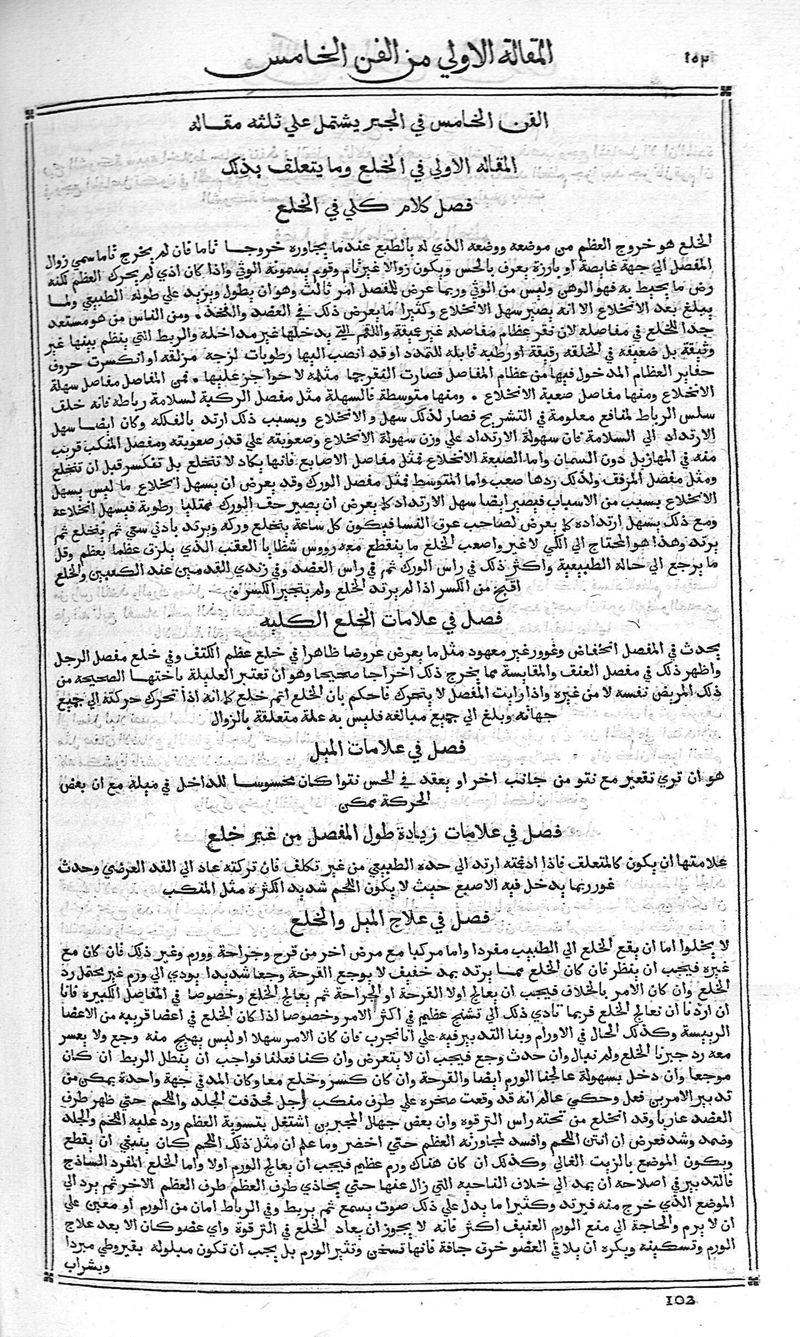 ١٥٢
المقالة الاولي من الفن الخامس
الفن الخامس في الجبر يشتمل علي ثلثه مقاله
المقاله الاولي في الخلع وما يتعلف بذلك
فصل كلام كلي في الخلع
الخلع هو خروج العظم من موضعه ووضعه الذي له بالطبع عندما يجاوره خروجا تاما فان لم يخرج تاما سمي زوال
المفصل الي جهة غايصة او بارزة يعرف بالحس ويكون زوالا غير تام وقوم يسمونه الوثي واذا كان اذي لم يحرك العظم لكنه
رض ما يحيط به فهو الوهي وليس من الوثي وربما عرض للمفصل امر ثالث وهو ان يطول ويزيد علي طوله الطبيعي ولما
يبلغ بعد الانخلاع الا انه يصير سهل الانخلاع وكثيرا ما يعرض ذلك في العضد والفخذ ٭ ومن الناس من هو مستعد
جدا للخلع في مفاصله لان نقر عظام مفاصله غير عميقة واللقم التي يدخلها غير مداخلة والربط التي ينظم بينها غير
وثيقة بل ضعيفه في الخلقه رقيقة او رطبه قابله للتمدد او قد انصب اليها رطوبات لزجه مزلقه او انكسرت حروف
حفاير العظام المدخول فيها من عظام المفاصل فصارت النقر جها مثلمه لا حواجز عليها ٭ فمن المفاصل مفاصل سهلة
الانخلاع ومنها مفاصل صعبة الانخلاع ٭ ومنها متوسطة فالسهلة مثل مفصل الركبة لسلامة رباطه فانه خلف
سلس الرباط لمنافع معلومة في التشريح فصار لذلك سهل والانخلاع وبسبب ذلك ارتد بالفلكه وكان ايضا سهل
الارتداد الي السلامة فان سهولة الارتداد علي وزن سهولة الانخلاع وصعوبته علي قدر صعوبته ومفصل المنكب قريب
منه في المهازيل دون السمان واما الصعبة الانخلاع فمثل مفاصل الاصابع فانها يكاد لا تنخلع بل تنكسر قبل ان تنخلع
ومثل مفصل المرفف ولذلك ردها صعب واما المتوسط فمثل مفصل الورك وقد يعرض ان يسهل انخلاع ما ليس يسهل
الانخلاع بسبب من الاسباب فيصير ايضا سهل الارتداد كما يعرض ان يصير حف الورك ممتليا رطوبة فيسهل انخلاعه
ومع ذلك يسهل ارتداده كما يعرض لصاحب عرق النسا فيكون كل ساعة ينخلع وركه ويرتد بادني سعي ثم ينخلع ثم
يرتد وهذا هو المحتاج الي الكي لا غير واصعب الخلع ما ينقطع معه رووس شظايا العقب الذي يلزق عظما بعظم وقل
ما يرجع الي حاله الطبيعية واكثر ذلك في راس الورك ثم في راس العضد وفي زندي القدمين عند الكعبين والخلع
اقبح من الكسر اذا لم يرتد الخلع ولم ينجبر الكسر
فصل في علامات الخلع الكليه
يحدث في المفصل انخفاض وغوور غير معهود مثل ما يعرض عروضا ظاهرا في خلع عظم الكتف وفي خلع مفصل الرجل
واظهر ذلك في مفصل العنف والمقايسة مما يخرج ذلك اخراجا صحيحا وهو ان تعتبر العليلة باختها الصحيحه من
ذلك المريض نفسه لا من غيره واذا رايت المفصل لا يتحرك فاحكم بان الخلع اتم خلع كما انه اذا تحرك حركته الي جميع
جهاته وبلغ الي جميع مبالغه فليس به علة متعلقة بالزوال
فصل في علامات الميل
هو ان تري تقعير مع نتو من جانب اخر او بعقد في الحس نتوا كان محسوسا للداخل في ميله مع ان بعض
الحركة ممكن
فصل في علامات زيادة طول المفصل من غير خلع
علامتها ان يكون كالمتعلف فاذا ادعته ارتد الي حده الطبيعي من غير تكلف فان تركته عاد الي القد العرضي وحدث
غور ربما يدخل فيه الاصبع حيث لا يكون اللحم شديد الكثرة مثل المنكب
فصل في علاج الميل والخلع
لا يخلوا اما ان يقع الخلع الي الطبيب مفردا واما مركبا مع مرض اخر من قرح وجراحة وورم وغير ذلك فان كان مع
غيره فيجب ان ينظر فان كان الخلع مما يرتد بمد خفيف لا يوجع القرحة وجعا شديدا يودي الي ورم غير يحتمل رد
الخلع وان كان الامر بالخلاف فيجب ان يعالج اولا القرحة او الجراحة ثم يعالج الخلع وخصوصا في المفاصل الكبيره فانا
ان اردنا ان نعالج الخلع فربما تادي ذلك الي تشنج عظيم في اكثر الامر وخصوصا اذا كان الخلع في اعضا قريبه من الاعضا
الرييسة وكذلك الحال في الاورام وبنا التدبير فيه علي انا نجرب فان كان الامر سهلا او ليس يهيج منه وجع ولا يعسر
معه رد جبرنا الخلع ولم نبال وان حدث وجع فيجب ان لا يتعرض وان كنا فعلنا فواجب ان ينطل الربط ان كان
موجعا وان دخل بسهولة عالجنا الورم ايضا والقرحة وان كان كسر وخلع معا وكان المد في جهة واحدة يمكن من
تدبير الامرين فعل وحكي عالم انه قد وقعت صخره علي طرف منكب رجل فحذفت الجلد واللحم حتي ظهر طرف
العضد عاريا وقد انخلع من تحته راس الترقوه وان بعض جهال المجبرين اشتغل بتسوية العظم ورد عليه اللحم والجلد
وضمد وشد فعرض ان انتن اللحم وافسد لمجاورته العظم حتي اخضر وما علم ان مثل ذلك اللحم كان ينبغي ان يقطع
ويكون الموضع بالزيت الغالي وكذلك ان كان هناك ورم عظيم فيجب ان يعالج الورم اولا واما الخلع المفرد الساذج
فالتدبير في اصلاحه ان يمد الي خلاف الناحيه التي زال عنها حتي يحاذي طرف العظم طرف العظم الاخر ثم يرد الي
الموضع الذي خرج منه فيرتد وكثيرا ما يدل علي ذلك صوت يسمع ثم يربط وفي الرباط امان من الورم او معين علي
ان لا يرم والحاجة الي منع الورم العنيف اكثر فانه لا يجوز ان يعاد الخلع في الترقوة واي عضو كان الا بعد علاج
الورم وتسكينه ويكره ان يلاقي العضو خرق جافة فانها تسخن وتثير الورم بل يجب ان تكون مبلوله بقيروطي مبردا
وبشراب
102